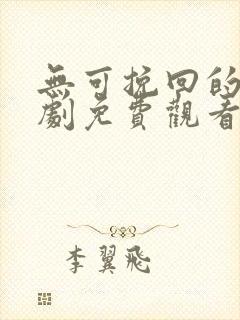 無可挽回的
劇免費觀看
李翼飛